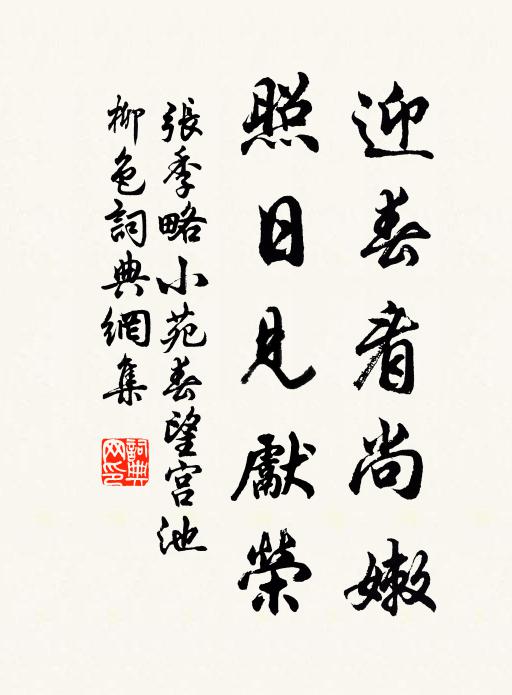 迎春看尚嫩
照日見獻榮
張季略小苑春望宮池
柳色詞典網集
詞典
网印